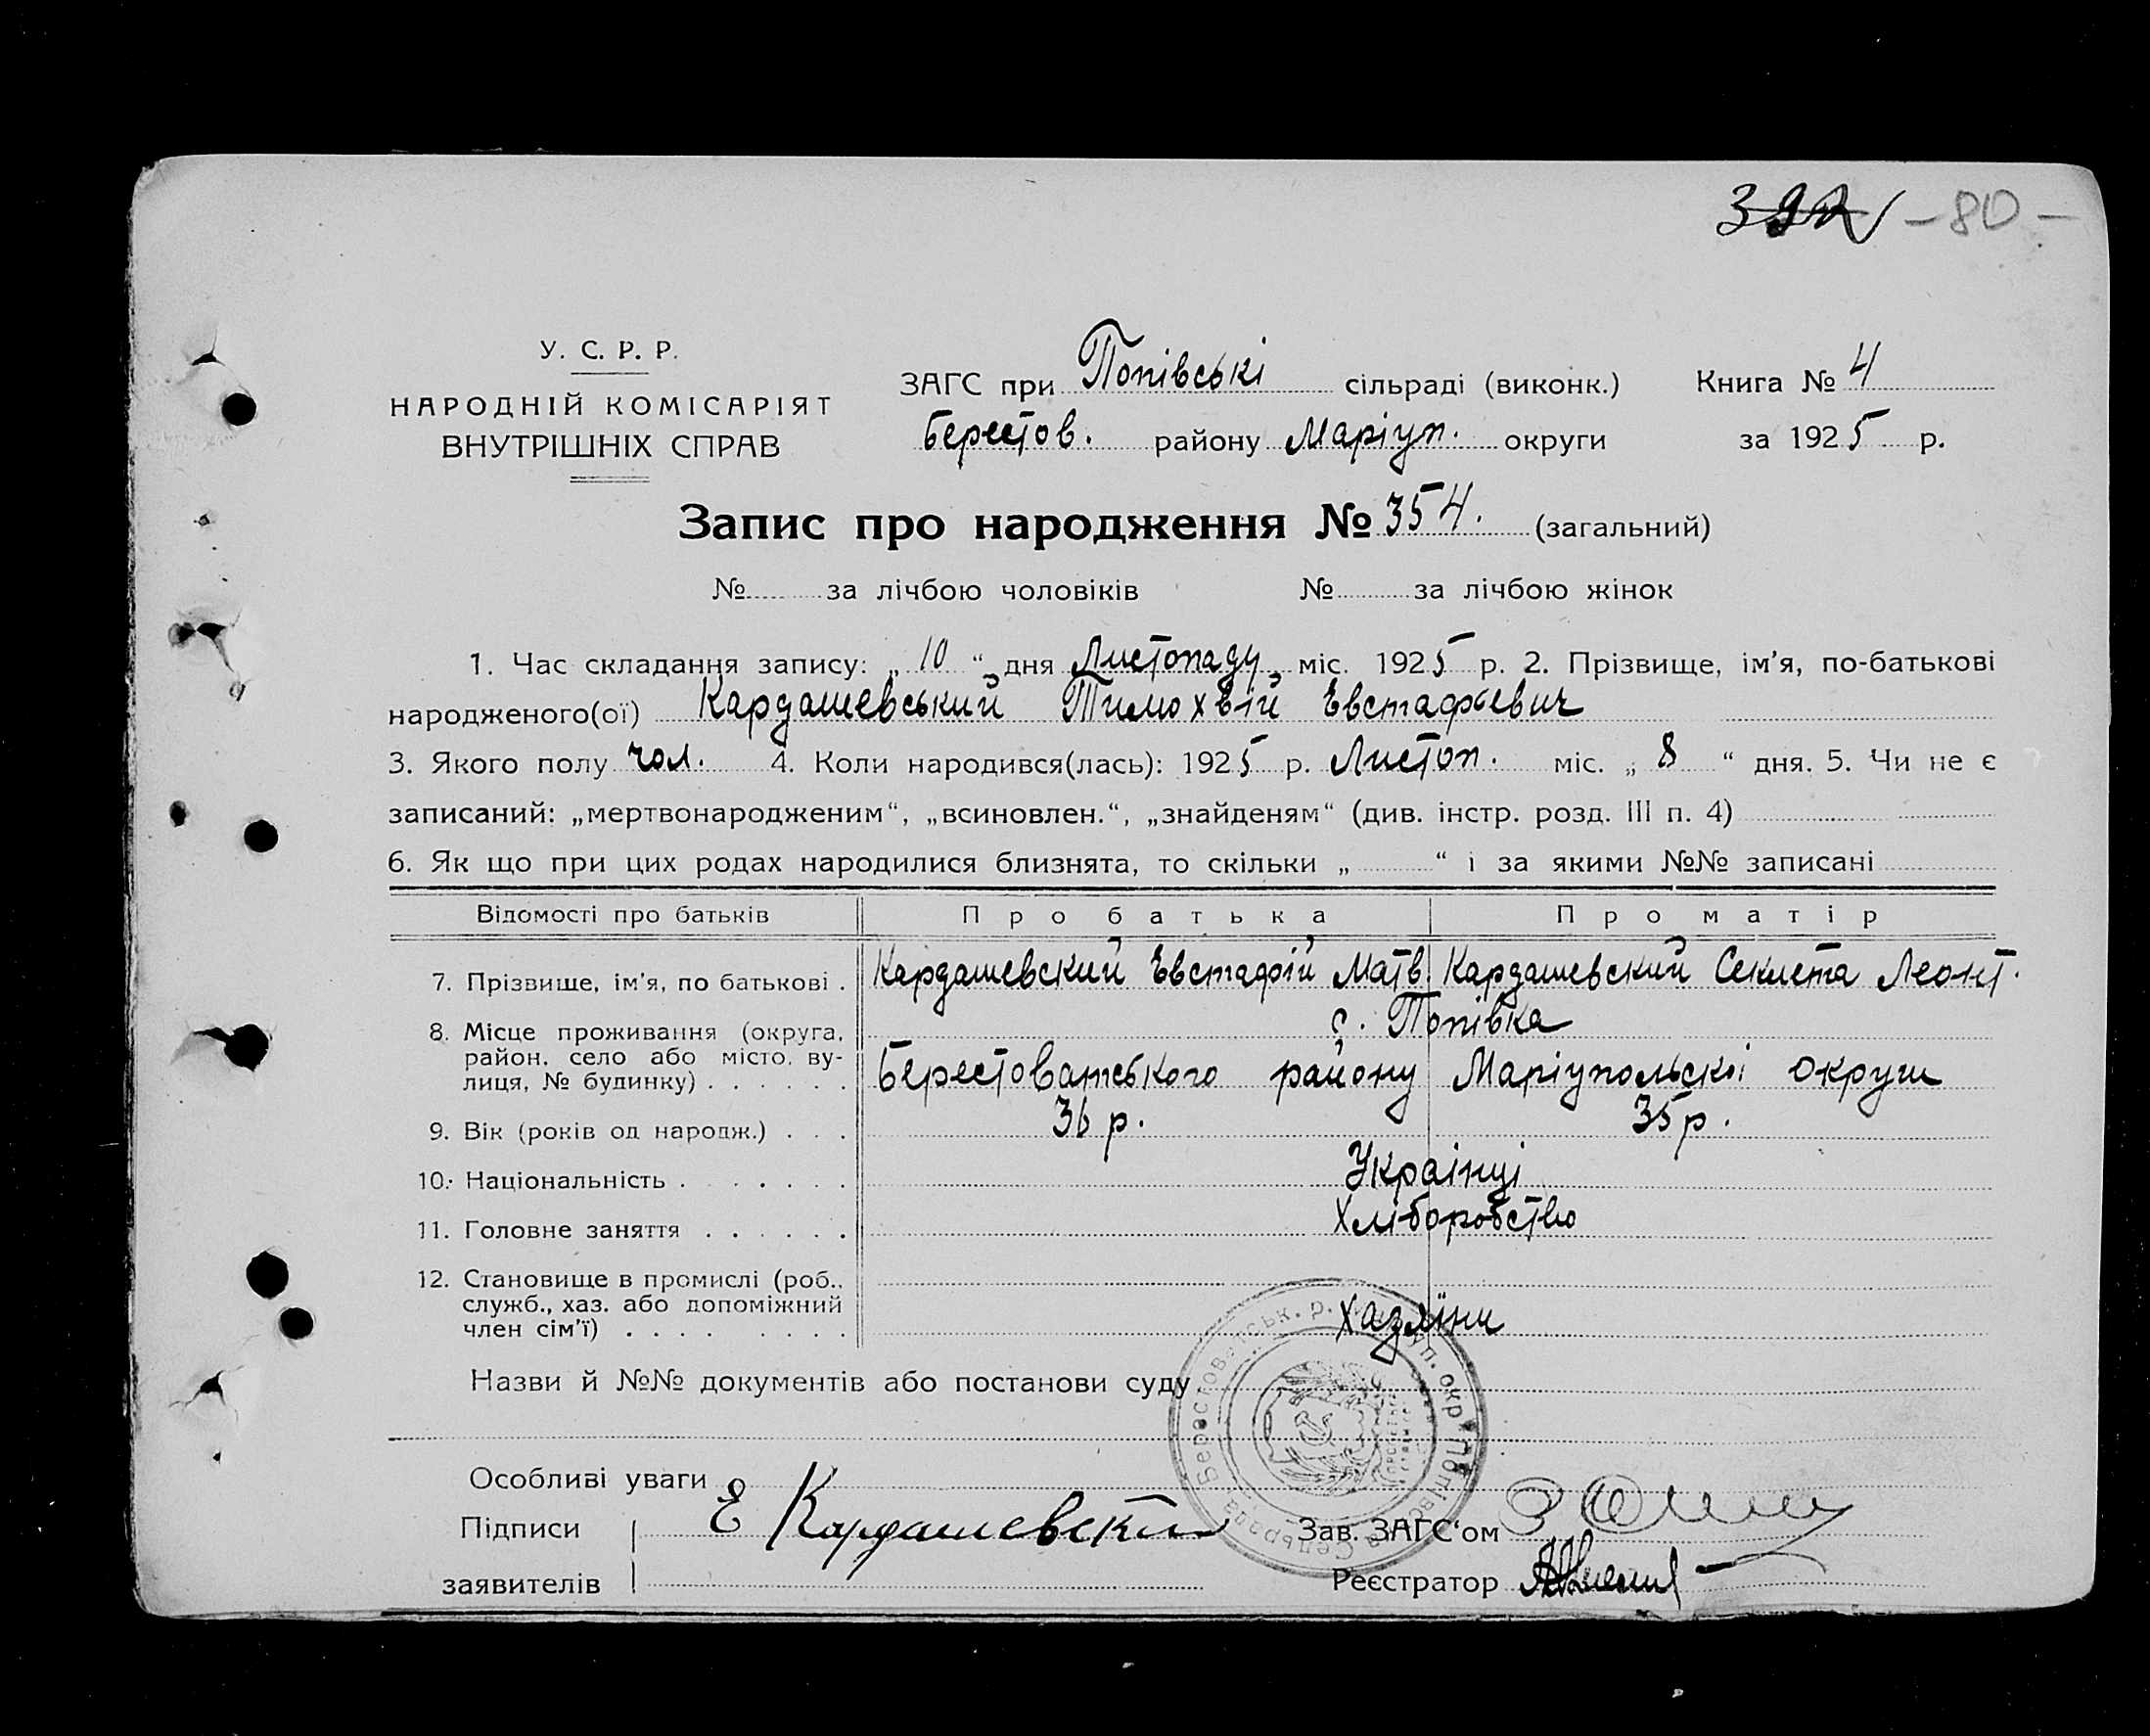 - 80 -
У. С. Р. Р.
НАРОДНІЙ КОМІСАРІЯТ
ВНУТРІШНІХ СПРАВ
ЗАГС при Попівські сільраді (виконк.) Книга № 4
Берестов. району Маріуп. округи за 1925 р.
Запис про народження № 354. (загальний)
№ за лічбою чоловіків № за лічбою жінок
1. Час складання запису: „ 10 “ дня Листопаду міс. 1925 р. 2. Прізвище, ім’я, по-батькові
народженого(ої) Кардашевський Тимохвій Евстафьевич
3. Якого полу чол. 4. Коли народився(лась): 1925 р. Листоп. міс. „ 8 “ дня. 5. Чи не є
записаний: „мертвонародженим“, „всиновлен.“, „знайденям“ (див. інстр. розд. III п. 4)
6. Як що при цих родах народилися близнята, то скільки „ “ і за якими №№ записані
Відомості про батьків Про батька Про матір
7. Прізвище, ім’я, по батькові . Кардашевский Евстафій Матв. Кардашевский Секлета Леонт.
8. Місце проживання (округа, с. Попівка
район, село або місто, ву-
лиця, № будинку) . . . . . . Берестоватського району Маріупольскоі округи
9. Вік (років од народж.) . . . 36 р. 35 р.
10. Національність . . . . . . . Украінці
11. Головне заняття . . . . . . Хліборобство
12. Становище в промислі (роб.,
служб., хаз. або допоміжний
член сім’ї) . . . . . . . . . Хазяіни
Назви й №№ документів або постанови суду
Особливі уваги
Підписи Е Кардашевский Зав. ЗАГС‘ом
заявителів Реєстратор